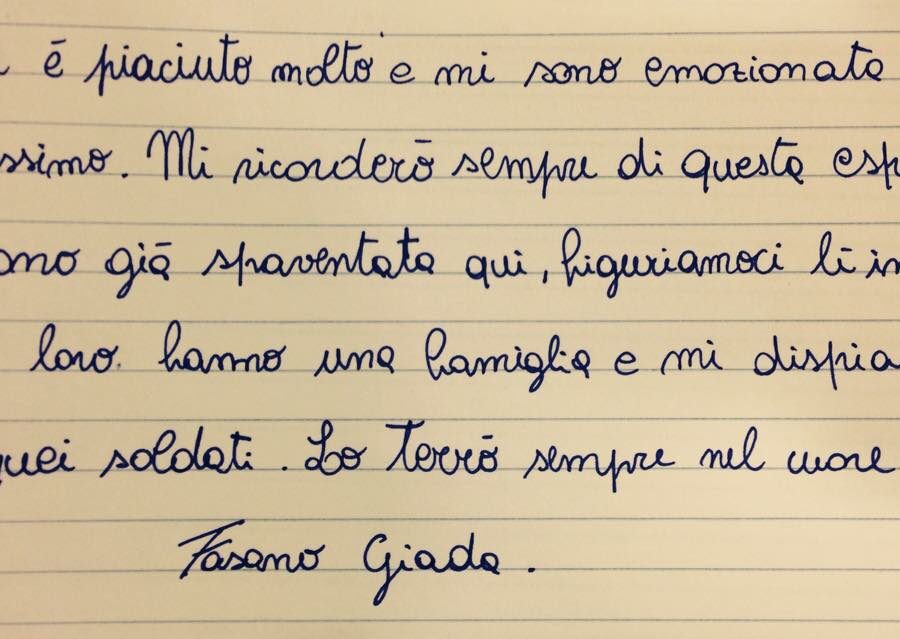 è piaciuto molto e mi sono emozionata
ssimo. Mi ricorderò sempre di questa esp
ono già spaventata qui, figuriamoci lì in
loro hanno una famiglia e mi dispia
quei soldati. Lo Terrò sempre nel cuore
Fasano Giada.